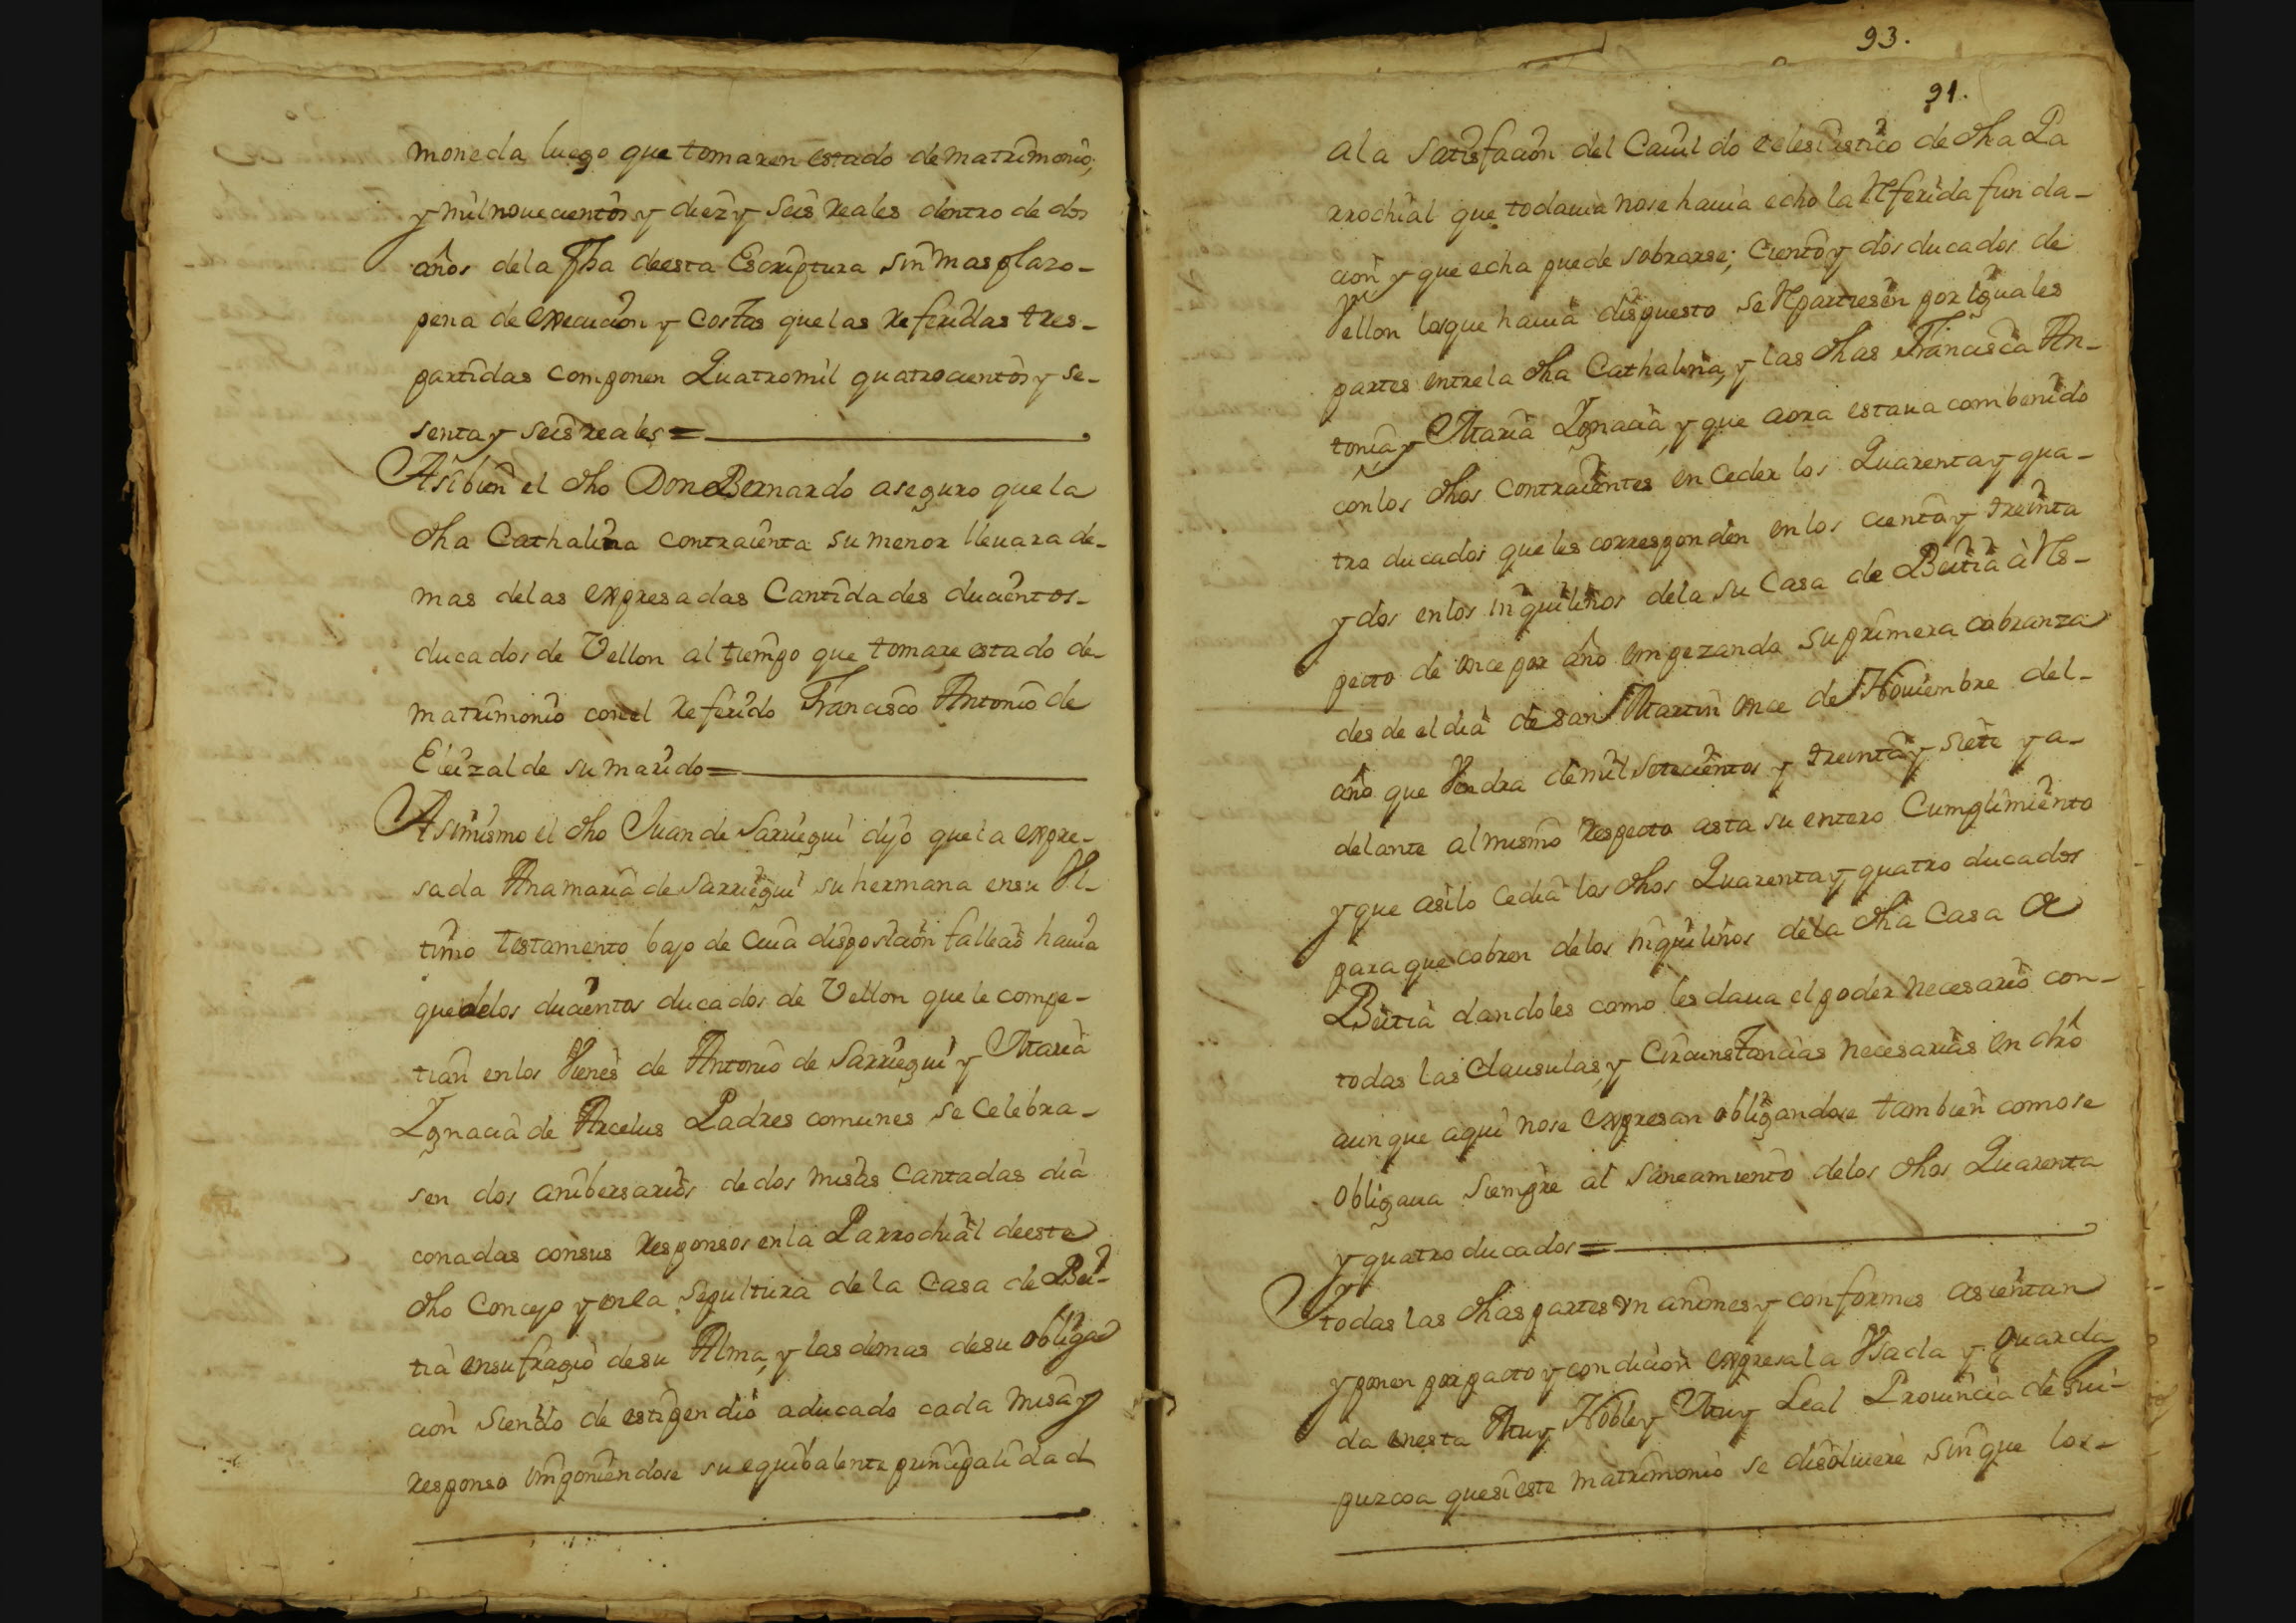 moneda luego que tomaren estado de matrimonio;
y mil novecientos y diez y seis reales dentro de dos
años de la fha de esta Escriptura sin mas plazo-
pena de execucion y costas que las referidas tres-
partidas componen Quatro mil quatrocientos y se-
senta y seis reales=
Asi bien el dho Don Bernardo aseguro que la
dha Cathalina contraienta su menor llevara de-
mas de las expresadas Cantidades ducientos-
ducados de Vellon al tiempo que tomare estado de
matrimonio con el referido Francisco Antonio de
Eleizalde su marido=
Asimismo el dho Juan de Sarriegui dijo que la expre-
sada Ana maria de Sarriegui su hermana en su Vl-
timo testamento bajo de cuia disposicion fallecio havia
que de los ducientos ducados de Vellon que le compe-
tian en los Vienes de Antonio de Sarriegui y Maria
Ygnacia de Arcelus Padres comunes se celebra-
sen dos anibersarios de dos misas Cantadas dia
conadas con sus Responsos en la Parrochial de este
dho Concejo y en la sepultura de la Casa de Bei-
tia en sufragio de su Alma, y las demas de su obliga
cion siendo de estipendio a ducado cada misa y
responso imponiendose su equibalente principalidad
93.
91.
a la satisfacion del Cavildo eclesiastico de dha Pa
rrochial que todavia no se havia echo la referida funda-
cion y que echa puede sobrarse; Ciento y dos ducados de
Vellon los que havia dispuesto se repartiesen por iguales
partes entre la dha Cathalina, y las dhas Francisca An-
tonia y Maria Ygnacia, y que aora estava combenido
con los dhos contraientes en Ceder los Quarenta y qua-
tro ducados que les corresponden en los ciento y treinta
y dos en los inquilinos de la su Casa de Beitia à res-
pecto de once por año empezando su primera cobranza
desde el dia de San Martin once de Noviembre del-
año que Vendra de mil setecientos y treinta y siete y a-
delante al mismo respecto asta su entero Cumplimiento
y que asi lo cedia los dhos Quarenta y quatro ducados
para que cobren de los inquilinos de la dha Casa de
Beitia dandoles como les dava el poder necesario con-
todas las Clausulas, y Circunstancias necesarias en dro
aunque aqui no se expresan obligandose tambien como se
obligava siempre al saneamiento de los dhos Quarenta
y quatro ducados=
Y todas las dhas partes vnanimes y conformes asientan
y ponen por pacto y condicion expresa la Vsada y guarda
da en esta Muy Noble y Muy Leal Provincia de Gui-
puzcoa que si este matrimonio se disolviere sin que los-